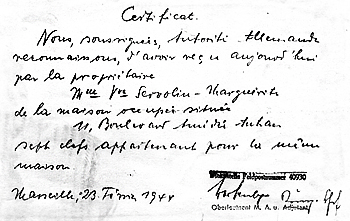 Certificat.
Nous, soussignés, Autorité Allemande
reconnaissons, d'avoir reçu aujourd'hui
par la propriétaire
Mme Vve Servolin-Marguerite
de la maison occupée située
11, Boulevard Amédée Autran
sept clefs appartenant pour la même
maison
Marseille, 23. Février 1944
Feldpostnummer 40930
Oberleutnant M. A. u. Adjutant